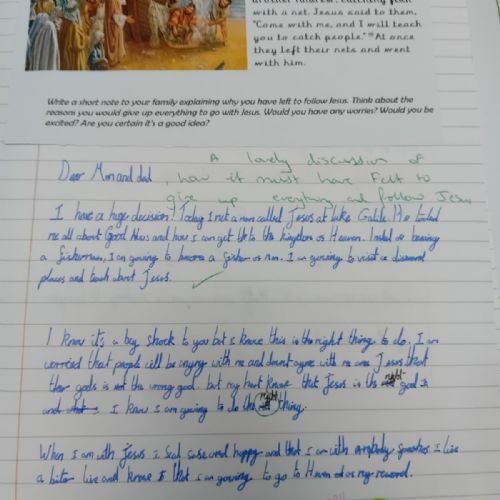 with a net. Jesus said to them,
"Come with me, and I will teach
you to catch people." At once
they left their nets and went
with him.
Write a short note to your family explaining why you have left to follow Jesus. Think about the
reasons you would give up everything to go with Jesus. Would you have any worries? Would you be
excited? Are you certain it's a good idea?
A lovely discussion of
Dear Mom and dad, how it must have felt to
give up everything and follow Jesus
I have a huge decision. Today I met a man called Jesus at lake Galile. He told
me all about Good News and how I can get to the kingdom of Heaven. Insted of
a fisherman, I am gowing to become a fisher of men. I am gowing to visit
places and teach about Jesus.
I know it's a big shock to you but I know this is the right thing to do. I am
worried that people will be angry with me and
their gods is not the wrong god. but my hart know that Jesus is the right god
and I know I am gowing to do the right thing.
When I am with Jesus I feel safe and happy and that I am with I live
a life and know that I am gowing to go to Heaven as my reward.